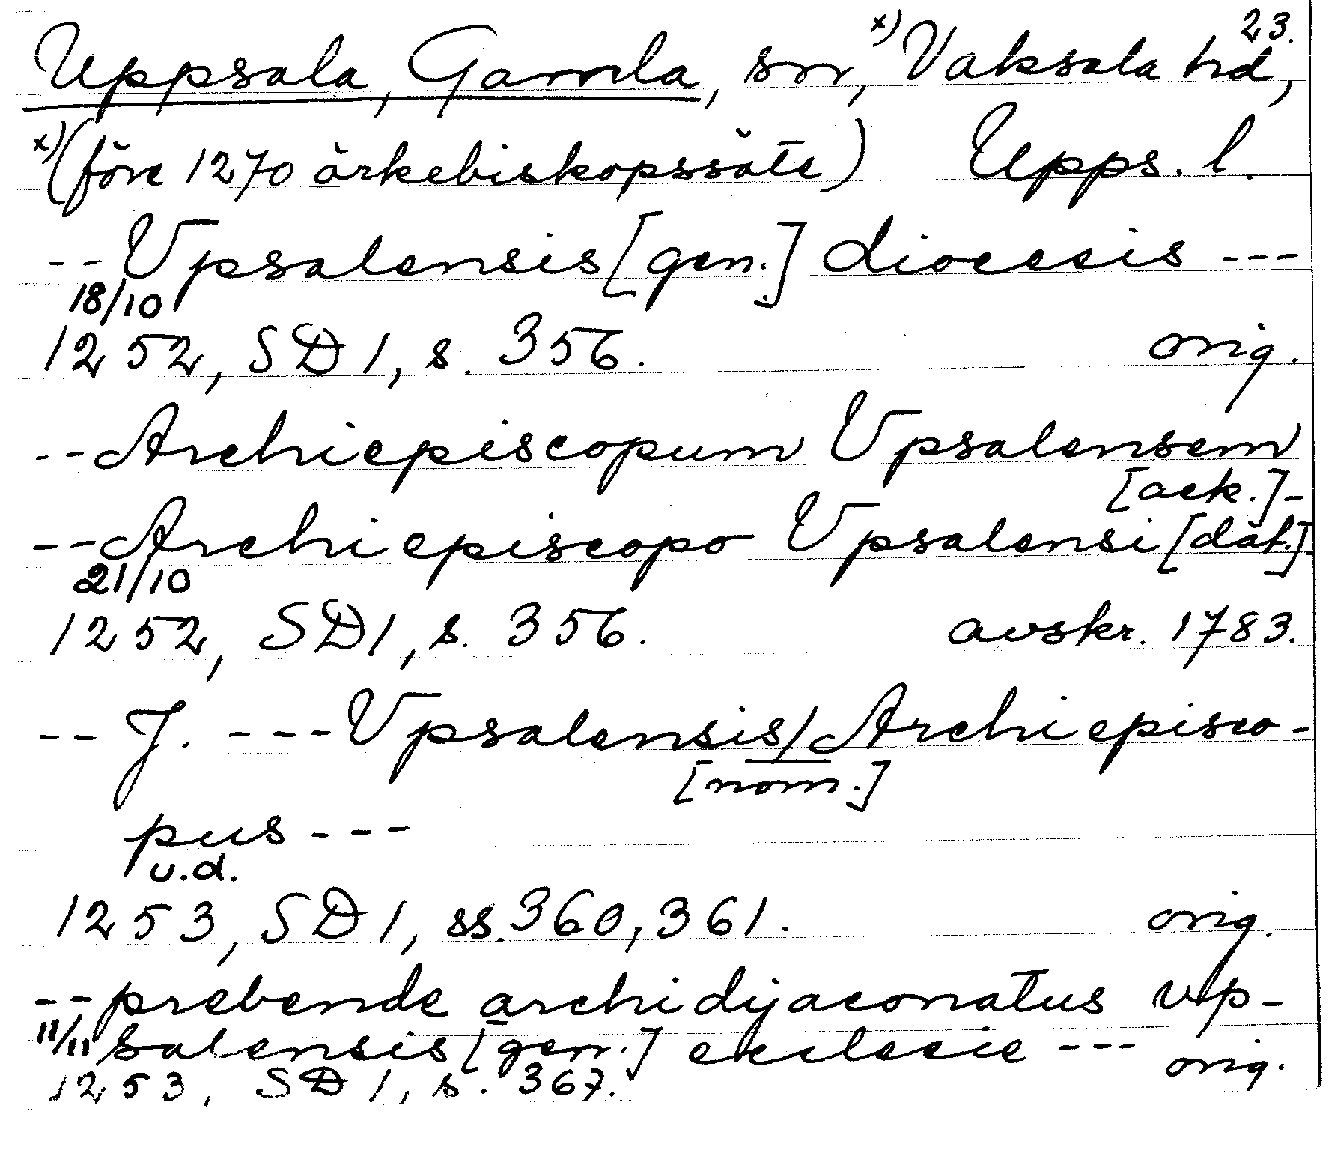 23.
Uppsala, Gamla, sn, x) Vaksala hd,
x) (före 1270 ärkebiskopssäte) Upps. l.
-- Vpsalensis [gen.] diocesis ---
18/10
1252, SD 1, s. 356. orig.
-- Archiepiscopum Vpsalensem
[ack.] -
-- Archiepiscopo Vpsalensi [dat.]
21/10
1252, SD 1, s. 356. avskr. 1783.
-- J. --- Vpsalensis / Archiepisco-
[nom.]
pus ---
u.d.
1253, SD 1, ss. 360, 361. orig.
-- prebende archidyaconatus vp-
11/11 salensis [gen.] ecclesie --- orig.
1253, SD 1, s. 367.